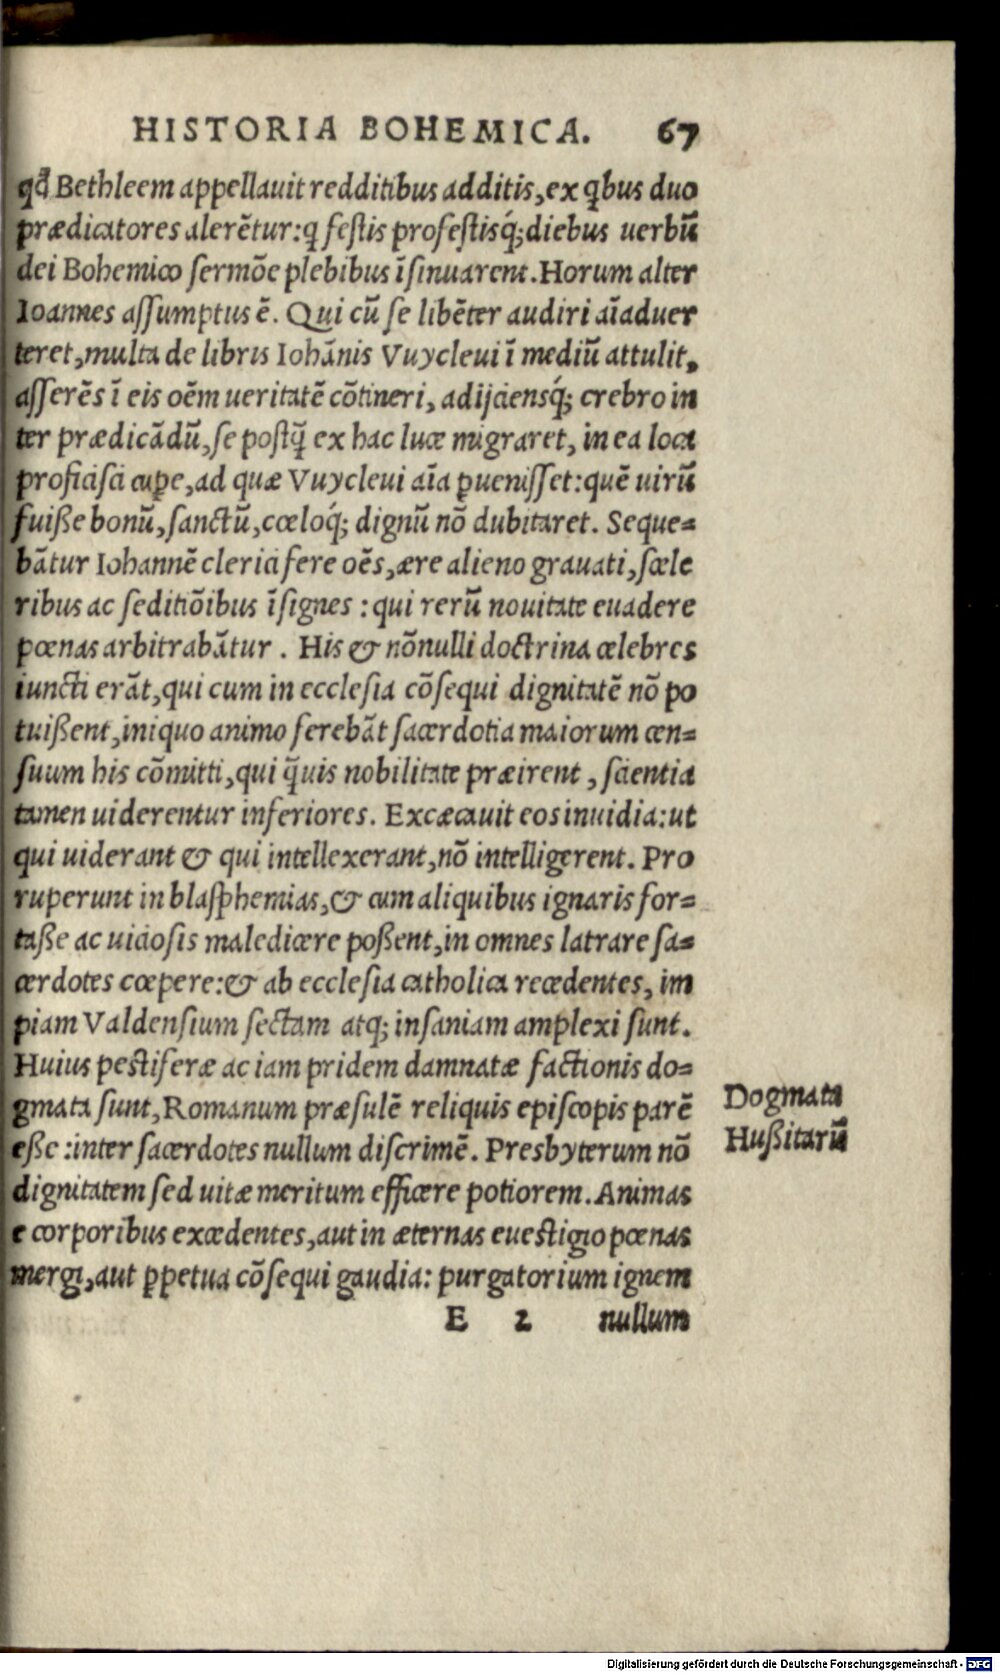 HISTORIA BOHEMICA. 67
qđ Bethleem appellauit redditibus additis, ex ꝗbus duo
prædicatores alerẽtur: ꝗ festis profestisq́; diebus uerbũ
dei Bohemico sermõe plebibus ĩsinuarent. Horum alter
Ioannes assumptus ẽ. Qui cũ se libẽter audiri aĩaduer
teret, multa de libris Iohãnis Vuycleui ĩ mediũ attulit,
asserẽs ĩ eis oẽm ueritatẽ cõtineri, adijciensq́; crebro in
ter prædicãdũ, se postq̃ ex hac luce migraret, in ea loca
proficisci cuꝑe, ad quæ Vuycleui aĩa ꝑuenisset: quẽ uirũ
fuiße bonũ, sanctũ, cœloq́; dignũ nõ dubitaret. Seque-
bãtur Iohannẽ clerici fere oẽs, ære alieno grauati, scele
ribus ac seditiõibus ĩsignes: qui rerũ nouitate euadere
pœnas arbitrabãtur. His & nõnulli doctrina celebres
iuncti erãt, qui cum in ecclesia cõsequi dignitatẽ nõ po
tuißent, iniquo animo ferebãt sacerdotia maiorum cen-
suum his cõmitti, qui q̃uis nobilitate præirent, scientia
tamen uiderentur inferiores. Excæcauit eos inuidia: ut
qui uiderant & qui intellexerant, nõ intelligerent. Pro
ruperunt in blasphemias, & cum aliquibus ignaris for-
taße ac uiciosis maledicere poßent, in omnes latrare sa-
cerdotes cœpere: & ab ecclesia catholica recedentes, im
piam Valdensium sectam atq; insaniam amplexi sunt.
Huius pestiferæ ac iam pridem damnatæ factionis do-
gmata sunt, Romanum præsulẽ reliquis episcopis parẽ
eße: inter sacerdotes nullum discrimẽ. Presbyterum nõ
dignitatem sed uitæ meritum efficere potiorem. Animas
e corporibus excedentes, aut in æternas euestigio pœnas
mergi, aut ꝑpetua cõsequi gaudia: purgatorium ignem
E 2 nullum
Dogmata
Hußitarũ
Digitalisierung gefördert durch die Deutsche Forschungsgemeinschaft - DFG